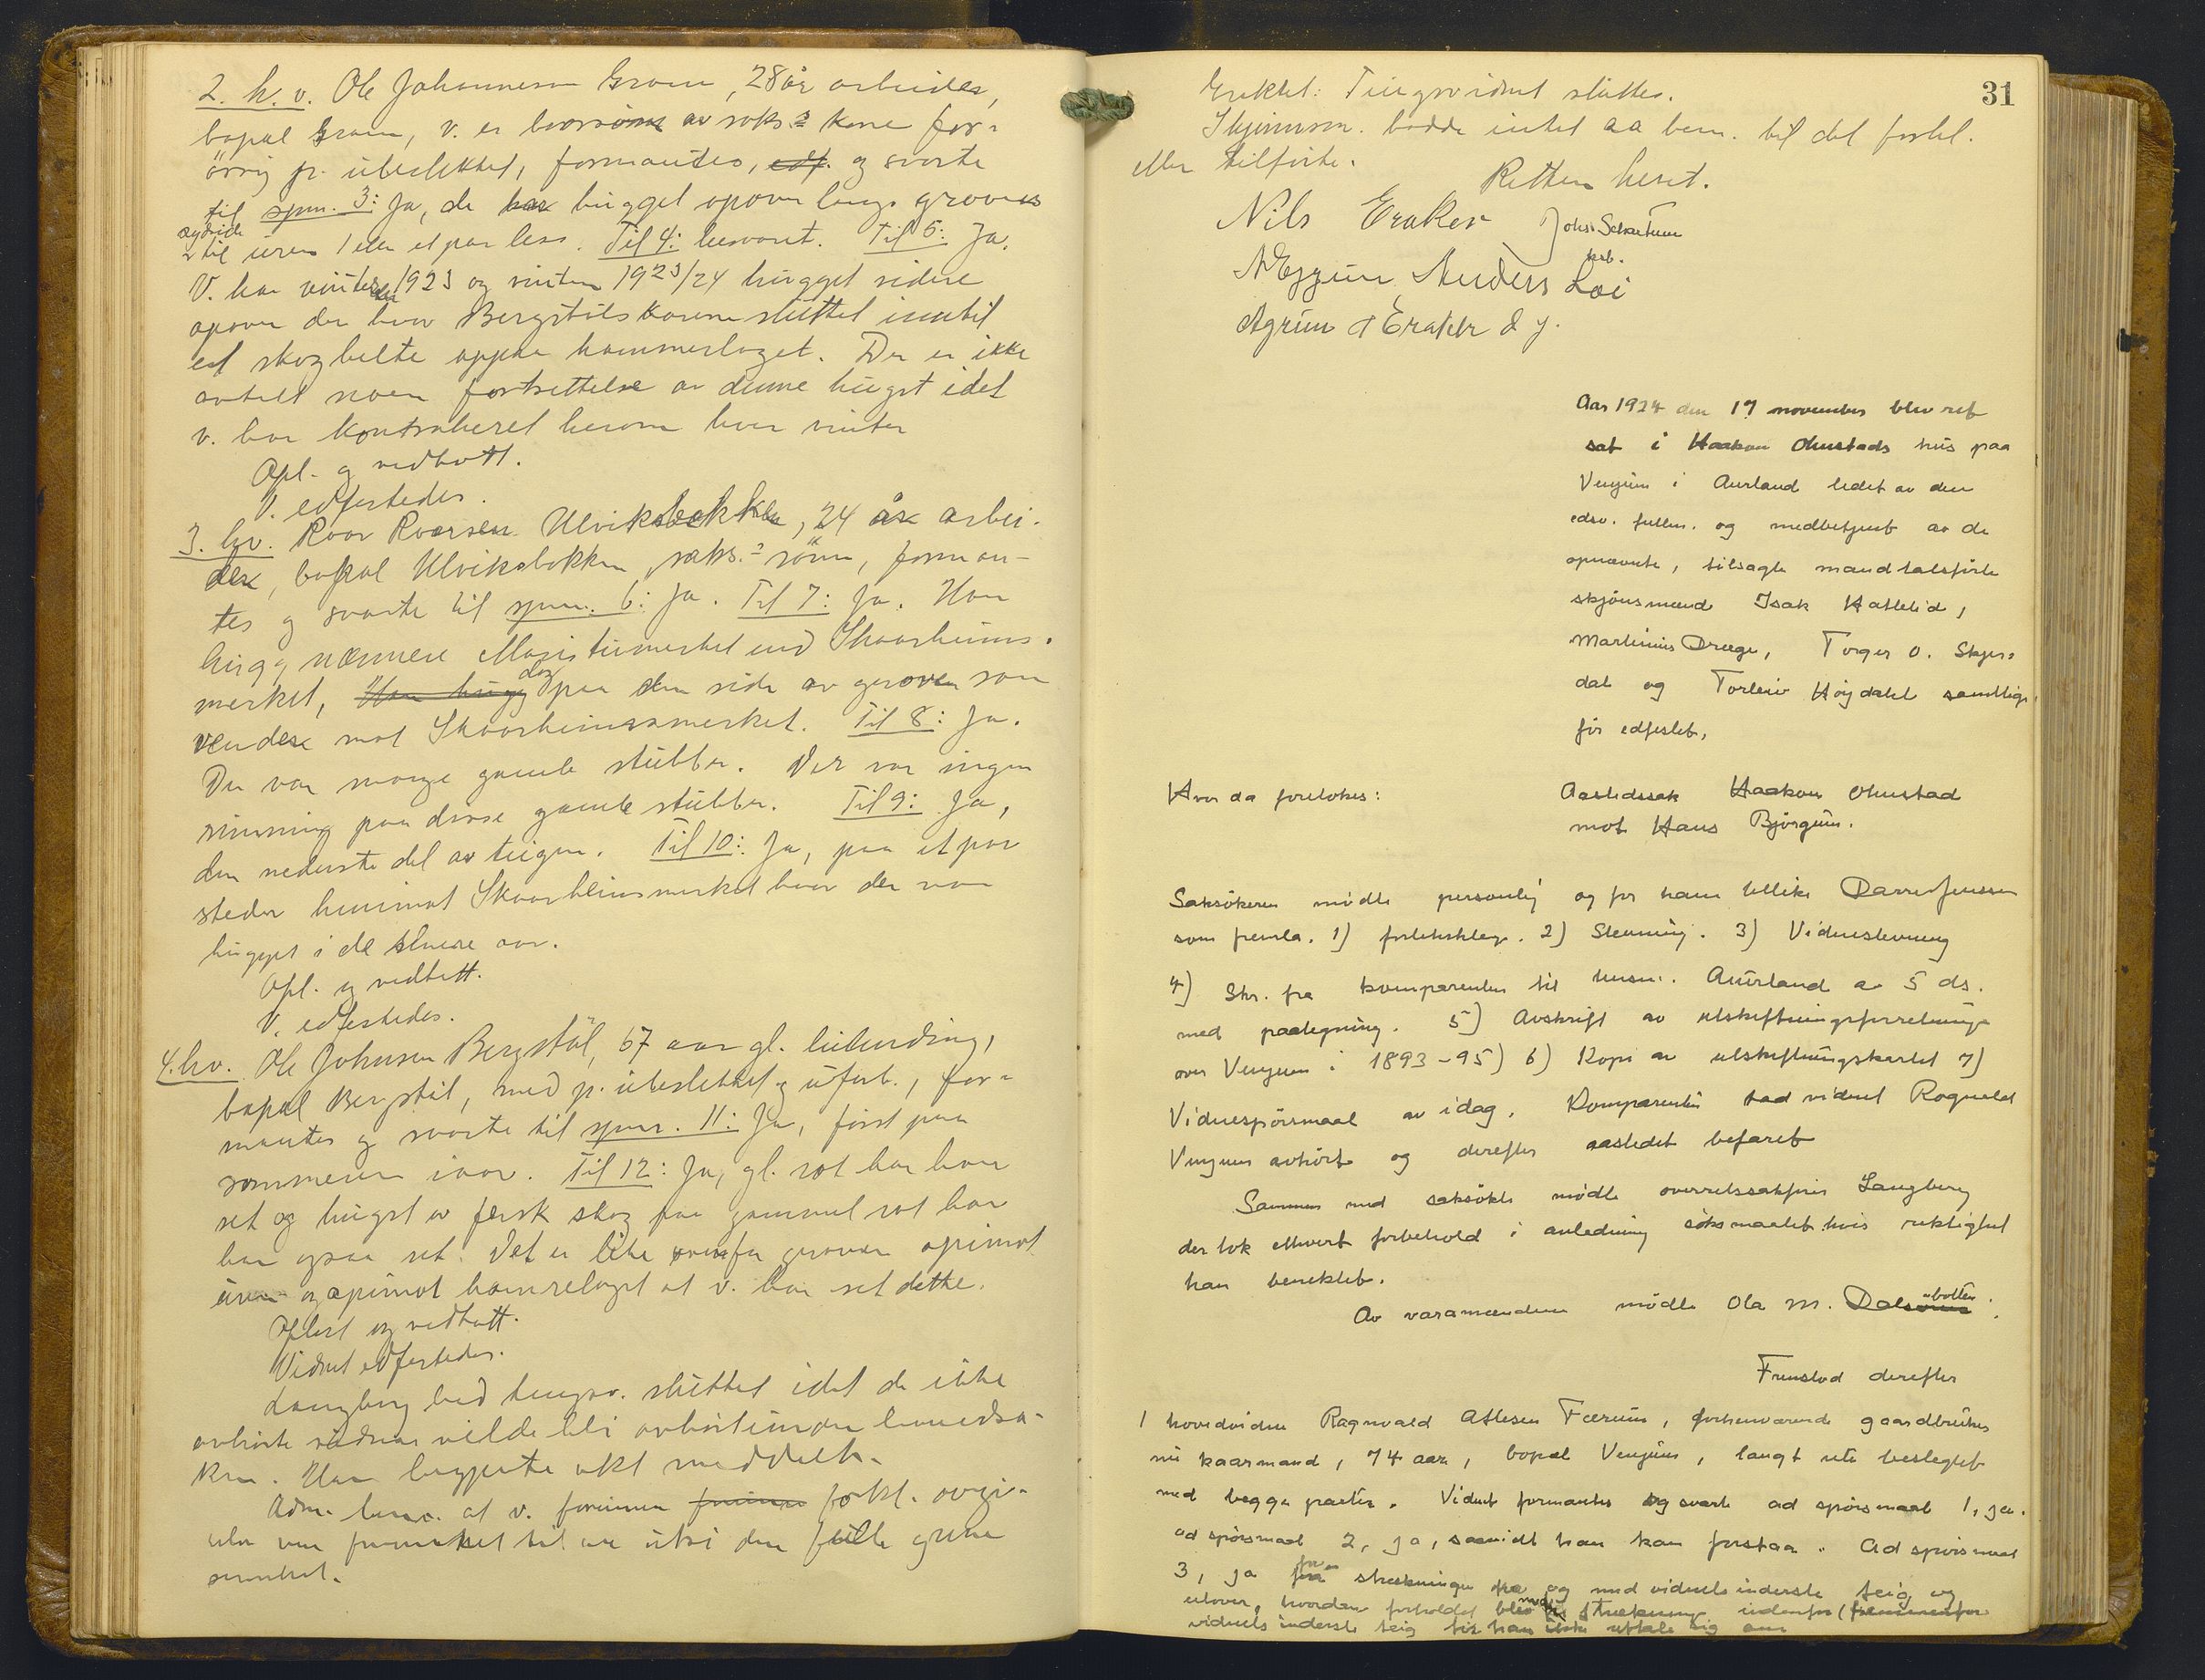 2. h. v. Ole Johannesen Gram, 28 år arbeider,
bopæl Gram, v. er brorsønn av saks.s kone for-
örrig p. ubeslektet, formantes, edf. og svarte
til spm. 3: Ja, de har hugget opover langs groven
til uren 1 eller et par less. Til 4: besvaret. Til 5: Ja.
V. har vinteren 1923 og vinteren 1923/24 hugget videre
opover der hvor Bergstölskarene sluttet inntil
et skogbelte oppaa hammerlaget. Der er ikke
avtalt noen fortsettelse av denne hugst idet
v. har kontrahert herom hver vinter
Opl. og vedtatt.
V. edfestedes.
3. hv. Roar Roarsen Ulviksbakken, 24 år arbei-
der, bopæl Ulviksbakken, saks.s sönn, forman-
tes og svarte til spm. 6: Ja. Til 7: Ja. Han
hugg nærmere Maristimerket end Skaarheims-
merket, Han hugg dog paa den side av groven som
vender mot Skaarheimsmerket. Til 8: Ja.
Der var mange gamle stubber. Der var ingen
rimming paa disse gamle stubber. Til 9: Ja,
den nederste del av teigen. Til 10: Ja, paa et par
steder henimot Skaarheimsmerket hvor der var
hugget i de senere aar.
Opl. og vedtatt.
V. edfestedes.
4. hv. Ole Johnsen Bergstöl, 67 aar gl.
bopæl Bergstöl, med p. ubeslektet og uforb., for-
mantes og svarte til spm. 11: Ja, först paa
sommeren iaar. Til 12: Ja, gl. rot har han
set og hugst av fersk skog paa gammel rot har
han ogsaa set. Det er like groven opimot
uren og opimot hamrelaget at v. har set dette.
Oplest og vedtatt.
Vidnet edfestedes.
Langberg bad tingsv. sluttet idet de ikke
avhörte vidner vilde bli avhört under hovedsa-
ken. Han begjærte akt meddelt.
Adm. bem. at v. forinnen forkl. avgi-
velse var fremstillet
31
Erklæt: Tingsvidnet sluttes.
Skjönnsm. hadde intet aa bem. til det forkl.
eller tilförte.
Retten hevet.
Nils Eraker Johs. Schartum
ksb.
A Eggum Anders Loi
Agrim A Eraker d y.
Aar 1924 den 17 november blev ret
sat i Haakon Ohnstads hus paa
Vengum i Aurland ledet av den
edsv. fullm. og medbetjent av de
opnævnte, tilsagte mandtalsförte
skjönsmænd Isak Hatlelid,
Martinus Dræge, Torger O. Skjer-
dal og Torleiv Höydalel samtlige
för edfestet,
Hvor da foretokes:
Aastedssak Haakon Ohnstad
mot Hans Bjørgum.
Saksökeren mödte personlig og for ham tillike Darre Jenssen
som fremla. 1) forliksklage. 2) Stevning. 3) Vidnestevning
4) Skr. fra komparenten til lensm. Aurland av 5 ds.
med paategning. 5) Avskrift av utskiftningsforretninge
over Vengum i 1893-95) 6) Kopi av utskiftningskartet 7)
Vidnespörsmaal av idag. Komparenten bad vidnet Ragnvald
Vengum avhört og derefter aastedet befaret
Sammen med saksökte mödte overretssakförer Langberg
der tok ethvert forbehold i anledning söksmaalet hvis riktighet
han benektet.
Av varamændene mødte Ola M. Dalsbotten.
Fremstod derefter
1 hovedvidne Ragnvald Atlesen Færum, forhenværende gaardbruker
nu kaarmand, 74 aar, bopæl Vengum, langt ute beslegtet
med begge parter. Vidnet formantes og svarte ad spörsmaal 1, ja.
ad spörsmaal 2, ja, saavidt han kan forstaa. Ad spörsmaal
3, ja for strækningen fra og med vidnets inderste teig og
utover, hvordan forholdet blev strækning indenfor
vidnets inderste teig tör han ikke uttale sig om